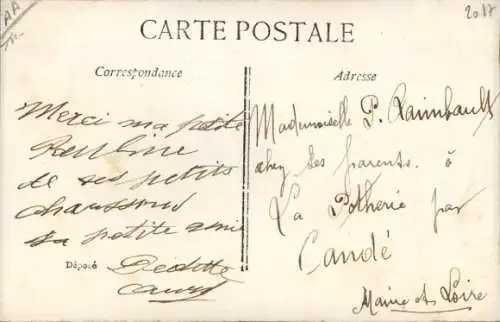 AA
2017
CARTE POSTALE
Correspondance
Adresse
Merci ma petite
de ses petits
chaussons
Sa petite amie
Dedette
Mademoiselle P. Raimbault
chez ses parents à
La Potherie par
Candé
Maine et Loire
Déposé